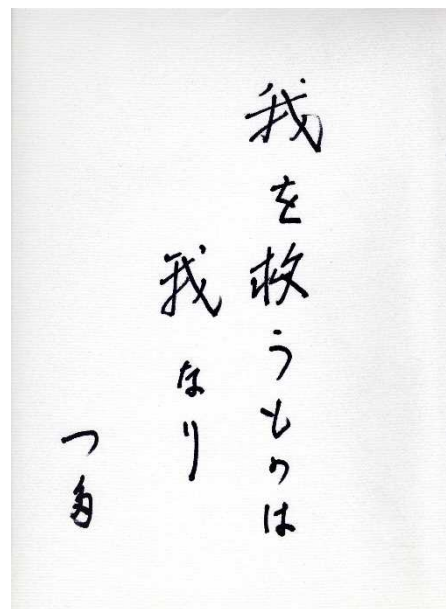 我を救うものは
我なり
つ多